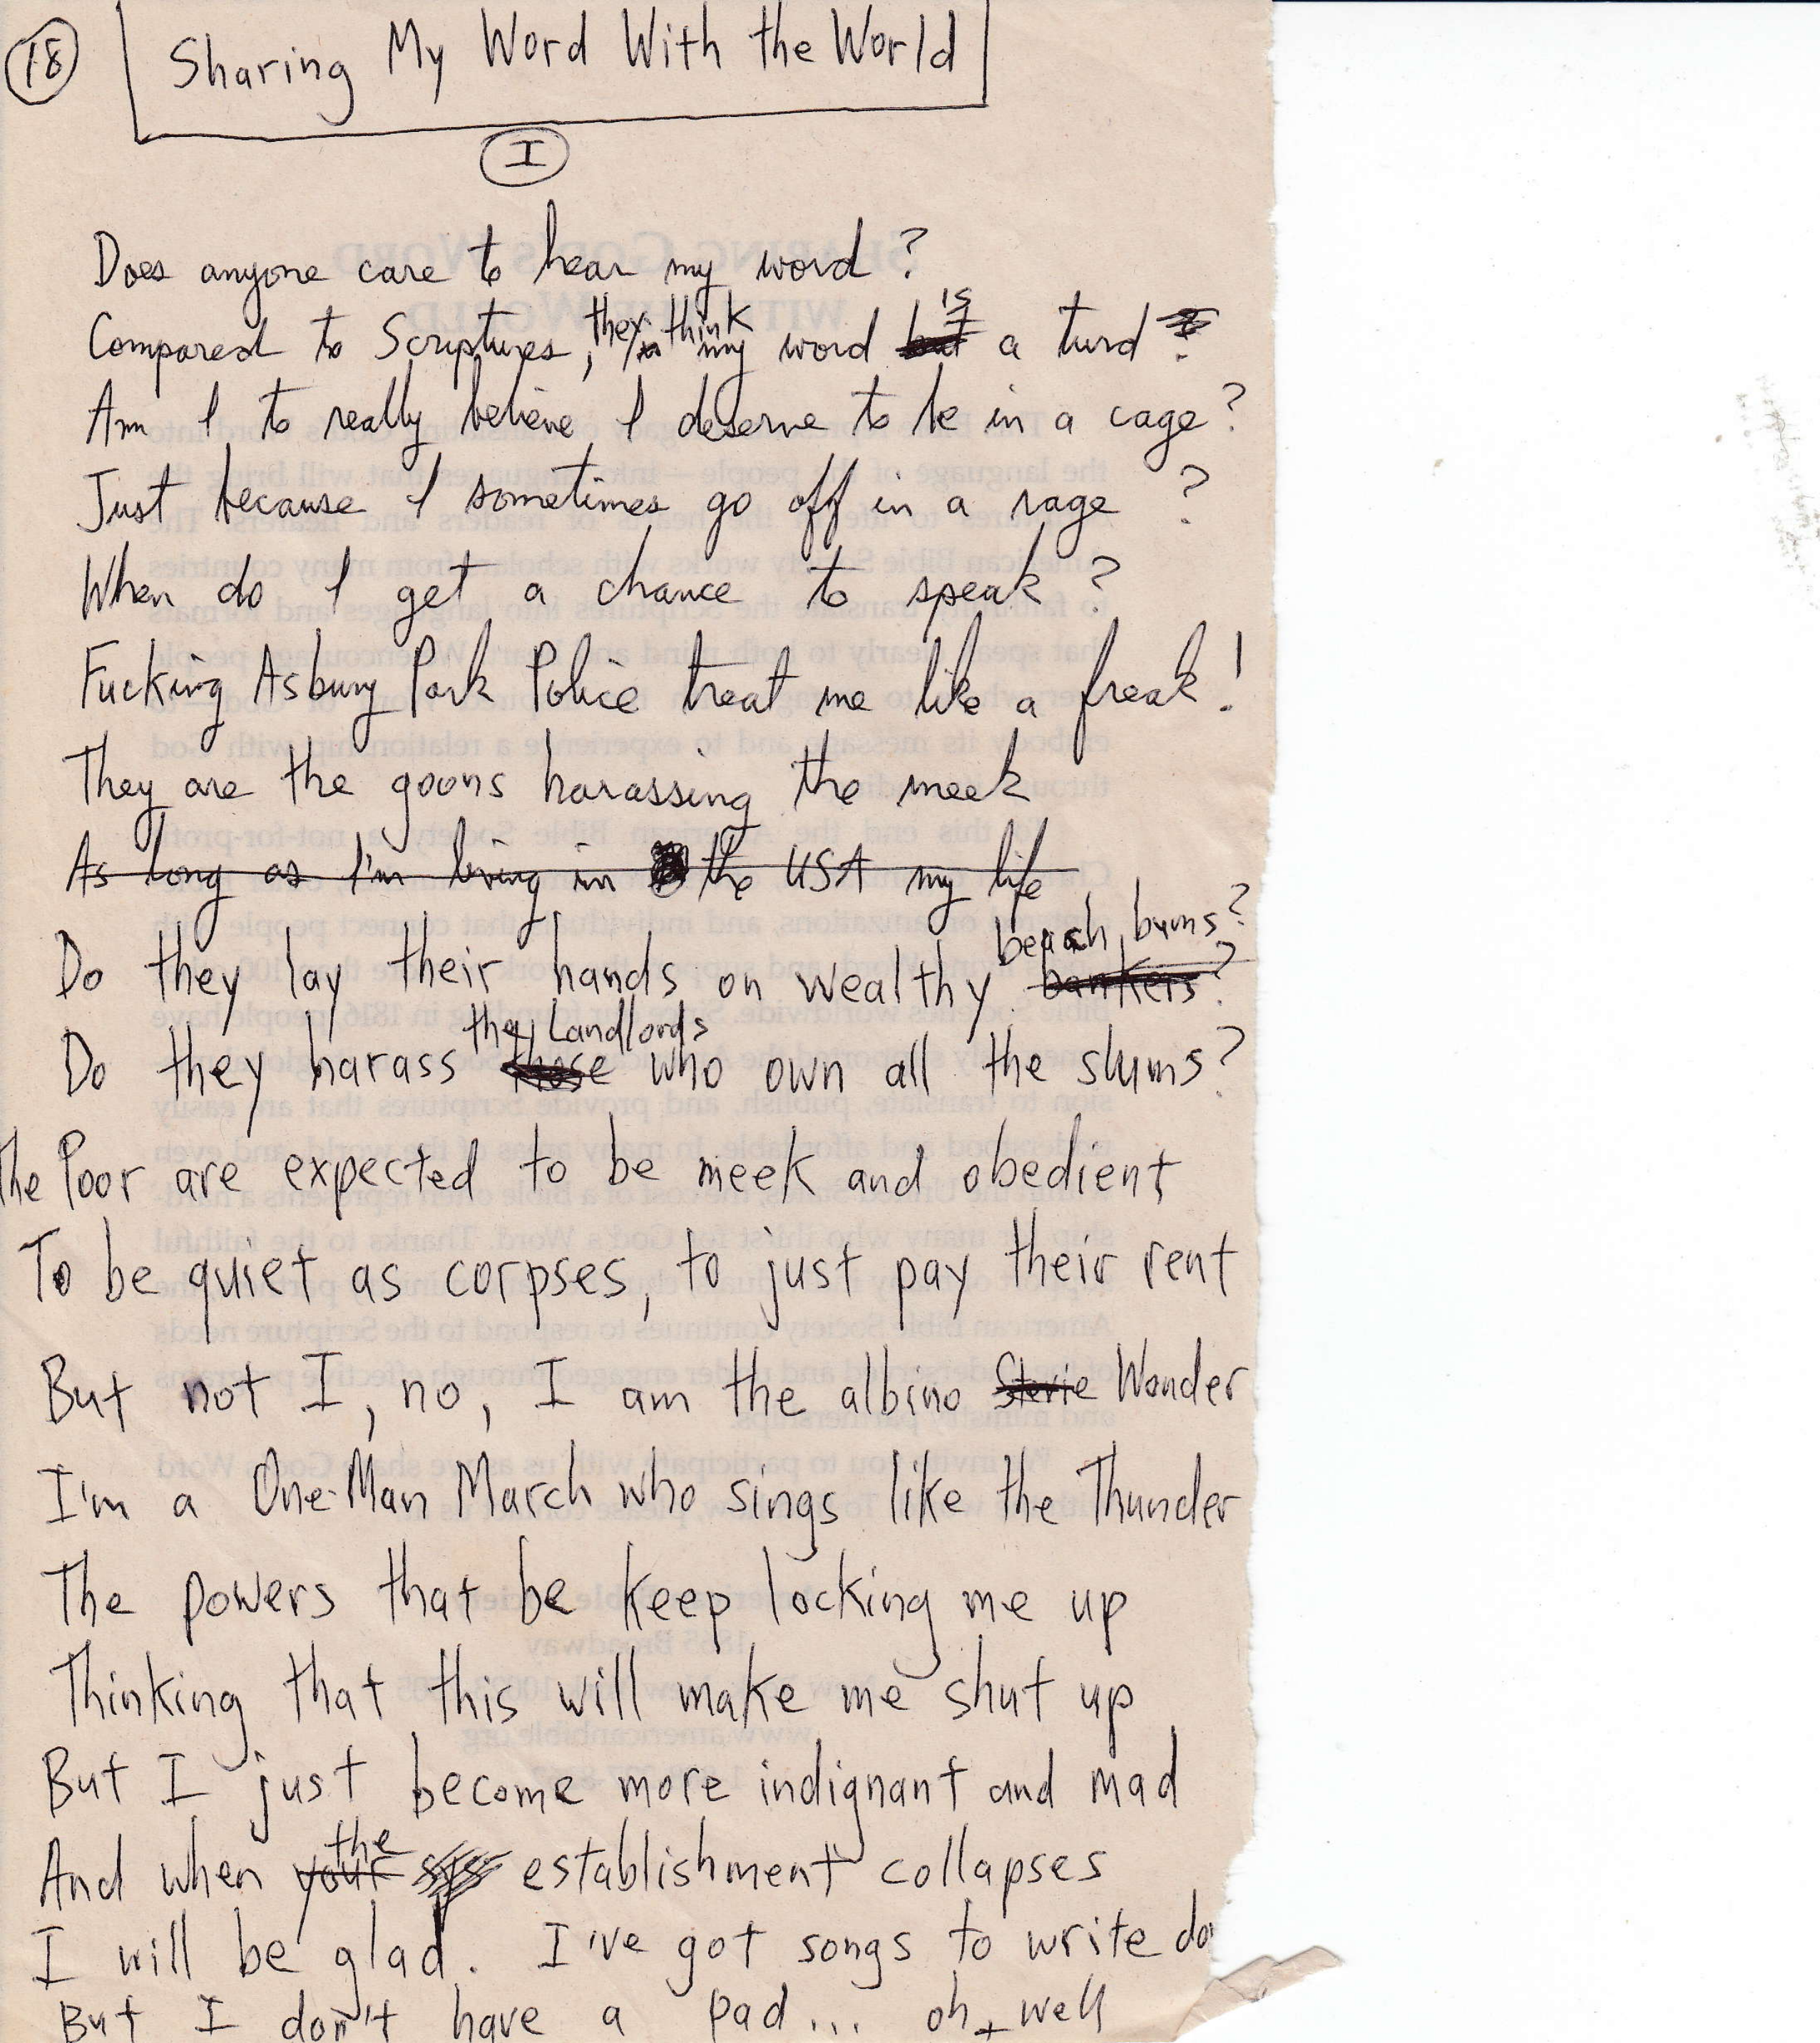 18
Sharing My Word With the World
I
Does anyone care to hear my word?
Compared to Scriptures, they think my word is a turd
Am I to really believe I deserve to be in a cage?
Just because I sometimes go off in a rage?
When do I get a chance to speak?
Fucking Asbury Park Police treat me like a freak!
They are the goons harassing the meek
As long as I'm living in the USA my life
Do they lay their hands on wealthy bankers? beach bums?
Do they harass those the Landlords who own all the slums?
The Poor are expected to be meek and obedient
To be quiet as corpses, to just pay their rent
But not I, no, I am the albino Stevie Wonder
I'm a One-Man March who sings like the Thunder
The powers that be keep locking me up
Thinking that this will make me shut up
But I just become more indignant and mad
And when your the sys establishment collapses
I will be glad. I've got songs to write do
But I don't have a pad... oh, well